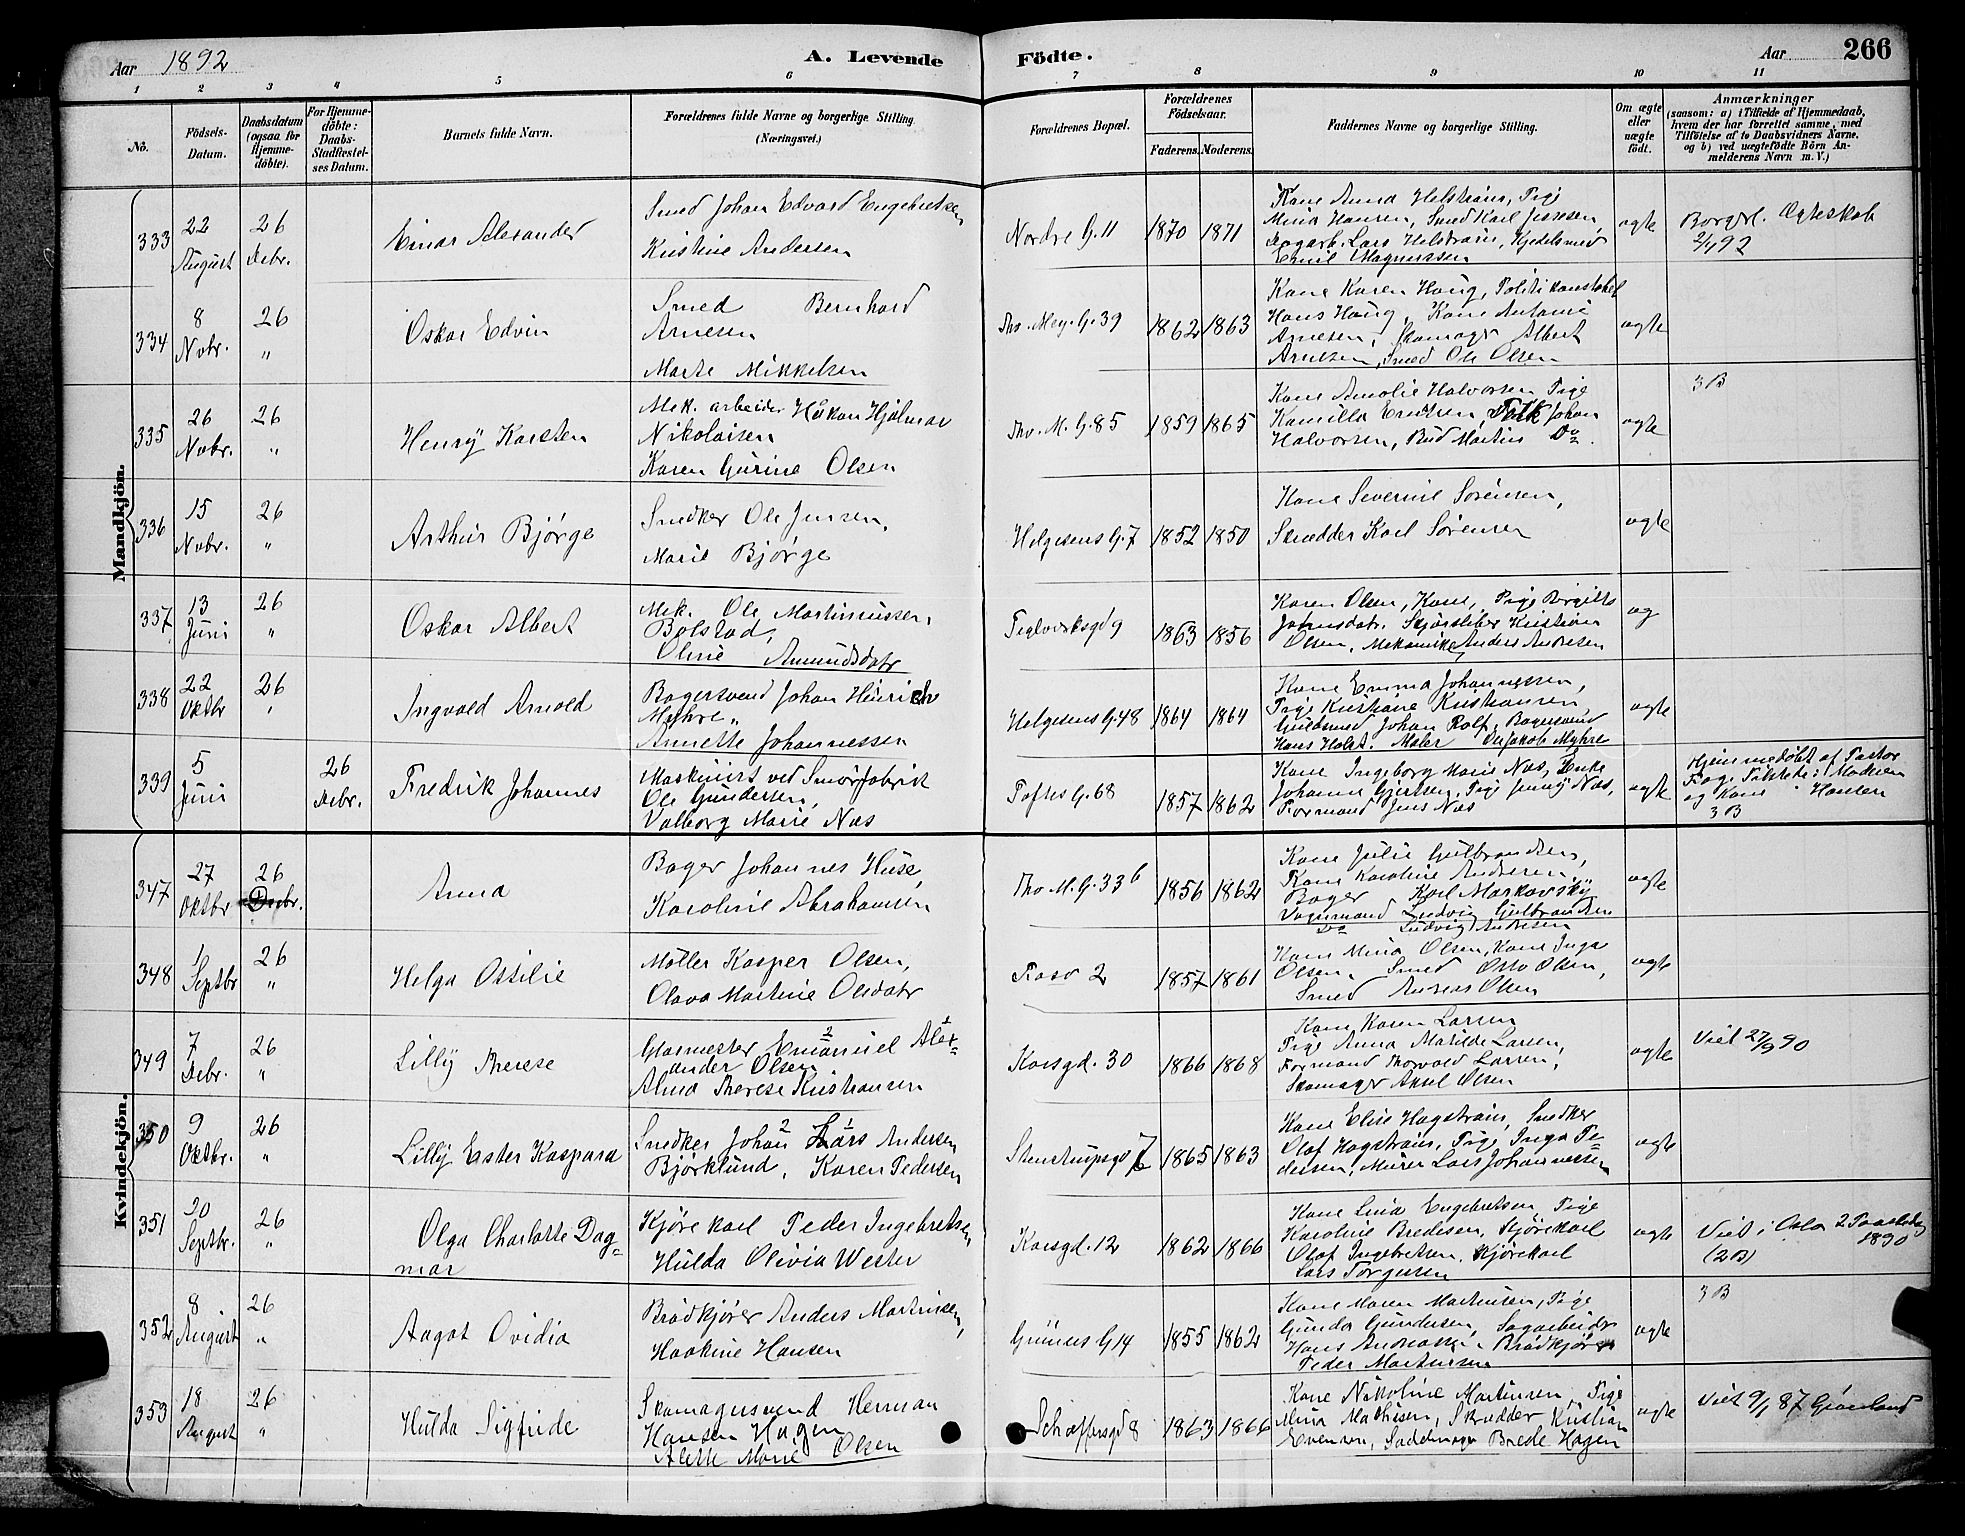 Aar 1892
A. Levende
Födte.
Aar
266
1 2 3 4 5 6 7 8 9 10 11
No.
Födsels-
Datum.
Daabsdatum
(ogsaa for
Hjemme-
döbte).
For Hjemme-
döbte:
Daabs-
Stadfæstel-
ses Datum.
Barnets fulde Navn.
Forældrenes fulde Navne og borgerlige Stilling
(Næringsvei.)
Forældrenes Bopæl.
Forældrenes
Födselsaar.
Faderens. Moderens.
Faddernes Navne og borgerlige Stilling.
Om ægte
eller
uægte
födt.
Anmærkninger
(saasom: a) i Tilfælde af Hjemmedaab,
hvem der har forrettet samme, med
Tilföielse af to Daabsvidners Navne,
og b) ved uægtefödte Börn An-
melderens Navn m. V.)
Mandkjön.
333
22
August
26
Debr.
Einar Alexander
Smed Johan Edvard Engebretsen
Kristine Andersen
Nordre G. 11
1870 1871
Kone Anna Helstrøm, Pige
Mina Hansen, Smed Karl Jensen,
Lars Helstrøm, Kjedelsmed
Emil Magnussen
ægte
Borgerl. Ægteskab
2/1 92
334
8
Nobr.
26
"
Oskar Edvin
Smed Bernhard
Arnesen
Marte Mikkelsen
Tho. Mey. G. 39
1862 1863
Kone Karen Haug, Politikonstabel
Hans Haug, Kone Antonie
Arnesen, Skomager Albert
Arnesen, Smed Ole Olsen
ægte
335
26
Nobr.
26
"
Henry Karsten
Mek. arbeider Håkon Hjalmar
Nikolaisen
Karen Gurine Olsen
Tho. M. G. 85
1859 1865
Kone Amalie Halvorsen Pige
Kamilla Johan
Halvorsen, Bud Martin Do
ægte
3 B
336
15
Nobr.
26
"
Arthur Bjørge
Snedker Ole Jensen,
Marie Bjørge
Helgesens G. 7
1852 1850
Kone Severine Sørensen,
Skrædder Karl Sørensen
ægte
337
13
Juni
26
"
Oskar Albert
Mek. Ole Martinussen
Bolstad,
Oline Amundsdatr
Teglverksgd 9
1863 1856
Karen Olsen, Kone, Pige Birgitte
Johnsdatr. Kristian
Olsen, Mekaniker Anders Andresen
æg
338
22
Oktbr
26
"
Ingvald Arnold
Bagersvend Johan Hinrich
Myhre,
Annette Johannessen
Helgesens G. 48
1864 1864
Kone Emma Johannessen,
Pige Kristiane Kristiansen,
Guldsmed Johan Rolf, Bagersvend
Hans Holst. Maler Ole Jakob Myhre
ægte
339
5
Juni
26
Debr.
Fredrik Johannes
Maskinist ved Smørfabrik
Ole Gundersen,
Valborg Marie Næs
Toftes G. 68
1857 1862
Kone Ingeborg Marie Næs, Enke
Johanne Gjertsen, Pige Jenny Næs,
Formand Jens Næs
ægte
Hjemmedøbt af Pastor
Moderen
og Kone Hansen
3 B
Kvindekjön.
347
27
Oktbr
26
Debr.
Anna
Bager Johannes Huse,
Karoline Abrahamsen
Tho M. G. 33 b
1856 1862
Kone Julie Gulbrandsen,
Kone Karoline Andresen,
Bager Karl Markovsky
Vognmand Ludvig Gulbrandsen
Do Ludvig Andresen
ægte
348
1
Septbr
26
"
Helga Ottilie
Møller Kasper Olsen,
Olava Martine Olsdatr
Fossv 2
1857 1861
Kone Mina Olsen, Kone Inga
Olsen, Smed Otto Olsen,
Smed Andreas Olsen
ægte
349
7
Debr.
26
"
Lilly Therese
Glasmester Emanuel Alex=
ander Olsen
Alma Therese Kristiansen
Korsgd. 30
1866 1868
Kone Karen Larsen
Pige Anna Matilde Larsen,
Formand Thorvald Larsen,
Skomager Axel Olsen
ægte
Viet 27/9 90
350
9
Oktbr.
26
"
Lilly Ester Kaspara
Snedker Johan Lars Andersen
Bjørklund, Karen Pedersen
Stenstrupsgd 7
1865 1863
Kone Elise Hagstrøm, Snedker
Olaf Hagstrøm, Pige Inga Pe=
dersen, Murer Lars Johannessen
ægte
351
30
Septbr.
26
"
Olga Charlotte Dag=
mar
Kjørekarl Peder Ingebretsen
Hulda Olivia Wester
Korsgd. 12
1862 1866
Kone Lina Engebretsen, Pige
Karoline Bredesen, Kjørekarl
Olaf Ingebretsen, Kjørekarl
Lars Torgersen
ægte
Viet i Oslo 2 Paaskedag
1890
(2 B)
352
8
August
26
"
Aagot Ovidia
Brødkjører Anders Martinsen,
Haakine Hansen
Grüners G 14
1855 1862
Kone Maren Martinsen, Pige
Gunda Gundersen, Sagarbeider
Hans Brødkjører
Peder Martinsen
ægte
3 B
353
18
August
26
"
Hulda Sigfride
Skomagersvend Herman
Hansen Hagen
Alette Marie Olsen
Schæffersgd 8
1863 1866
Kone Nikoline Martinsen, Pige
Mina Mathisen, Skrædder Kristian
Evensen, Sadelmager Brede Hagen
ægte
Viet 9/1 87 Grønland